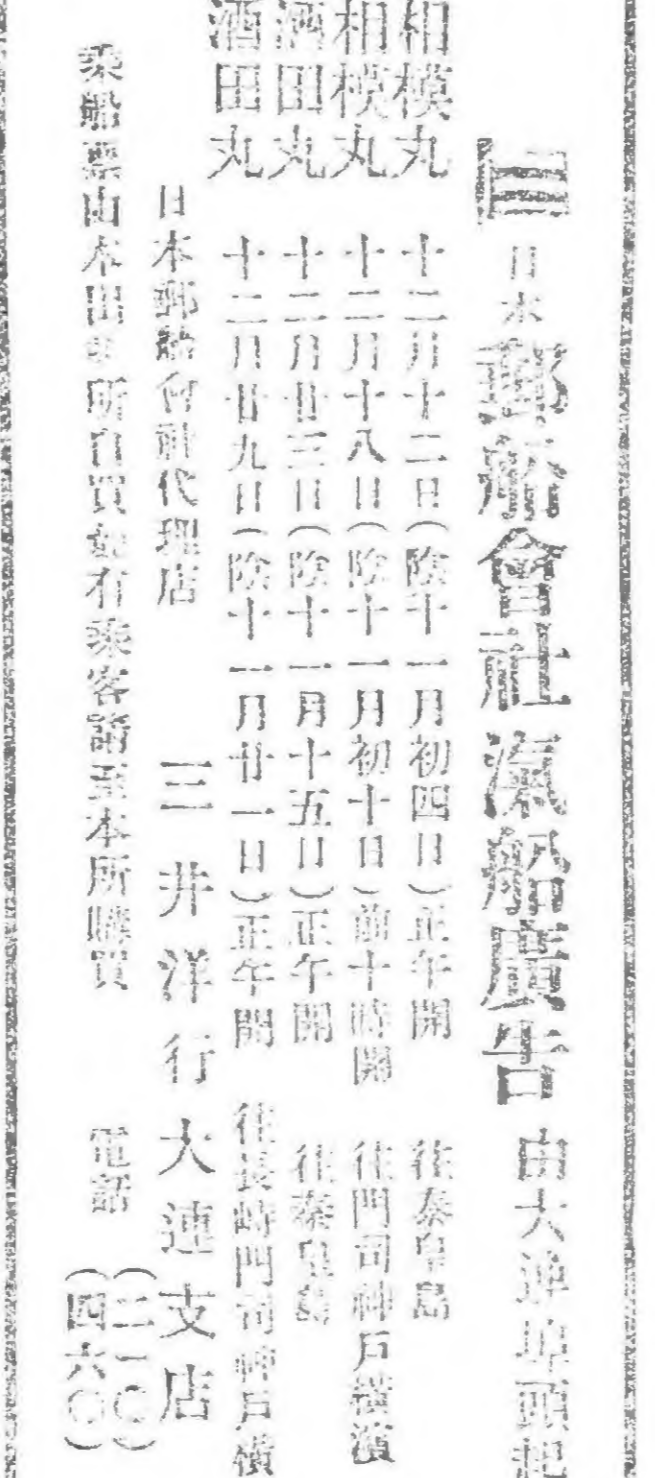 日本郵船會社汽船廣告 由大連
相模丸 十二月十二日(陰十一月初四日)正午開 往秦皇島
相模丸 十二月十八日(陰十一月初十日)前十時開 往門司神戶橫濱
酒田丸 十二月廿三日(陰十一月十五日)正午開 往秦皇島
酒田丸 十二月廿九日(陰十一月廿一日)正午開 往長崎門司神戶橫
日本郵船會社代理店 三井洋行大連支店
乘船票山本出 所自買 有乘客請至本所購買 電話 (二一〇)(四六〇)